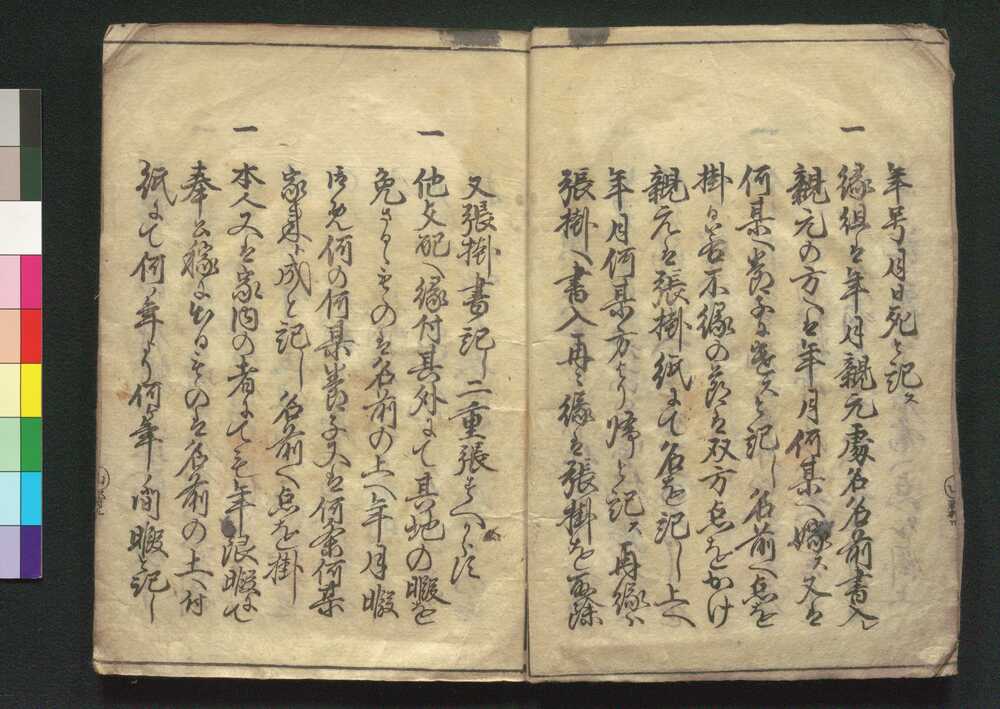 年号月日死と記ス
一 縁組は年月親元處名名前書入
親元の方へは年月何某へ嫁ス又は
何某へ養子ニ遣スと記し名前へ点を
掛ケ若不縁の節は双方点をかけ
親元は張掛紙にて名を記し上へ
年月何某方より帰と記ス再縁ハ
張掛へ書入再々縁は張掛を取除
又張掛書記し二重張すへからす
一 他支配へ縁付其外にて其地の暇を
免さるゝものは名前の上へ年月暇
何の何某養子又は何家何某
家来ニ成と記し名前へ点を掛
一 本人又は家内の者にても年限暇
奉公稼に出るものは名前の上へ付
紙にて何年より何年間暇と記し